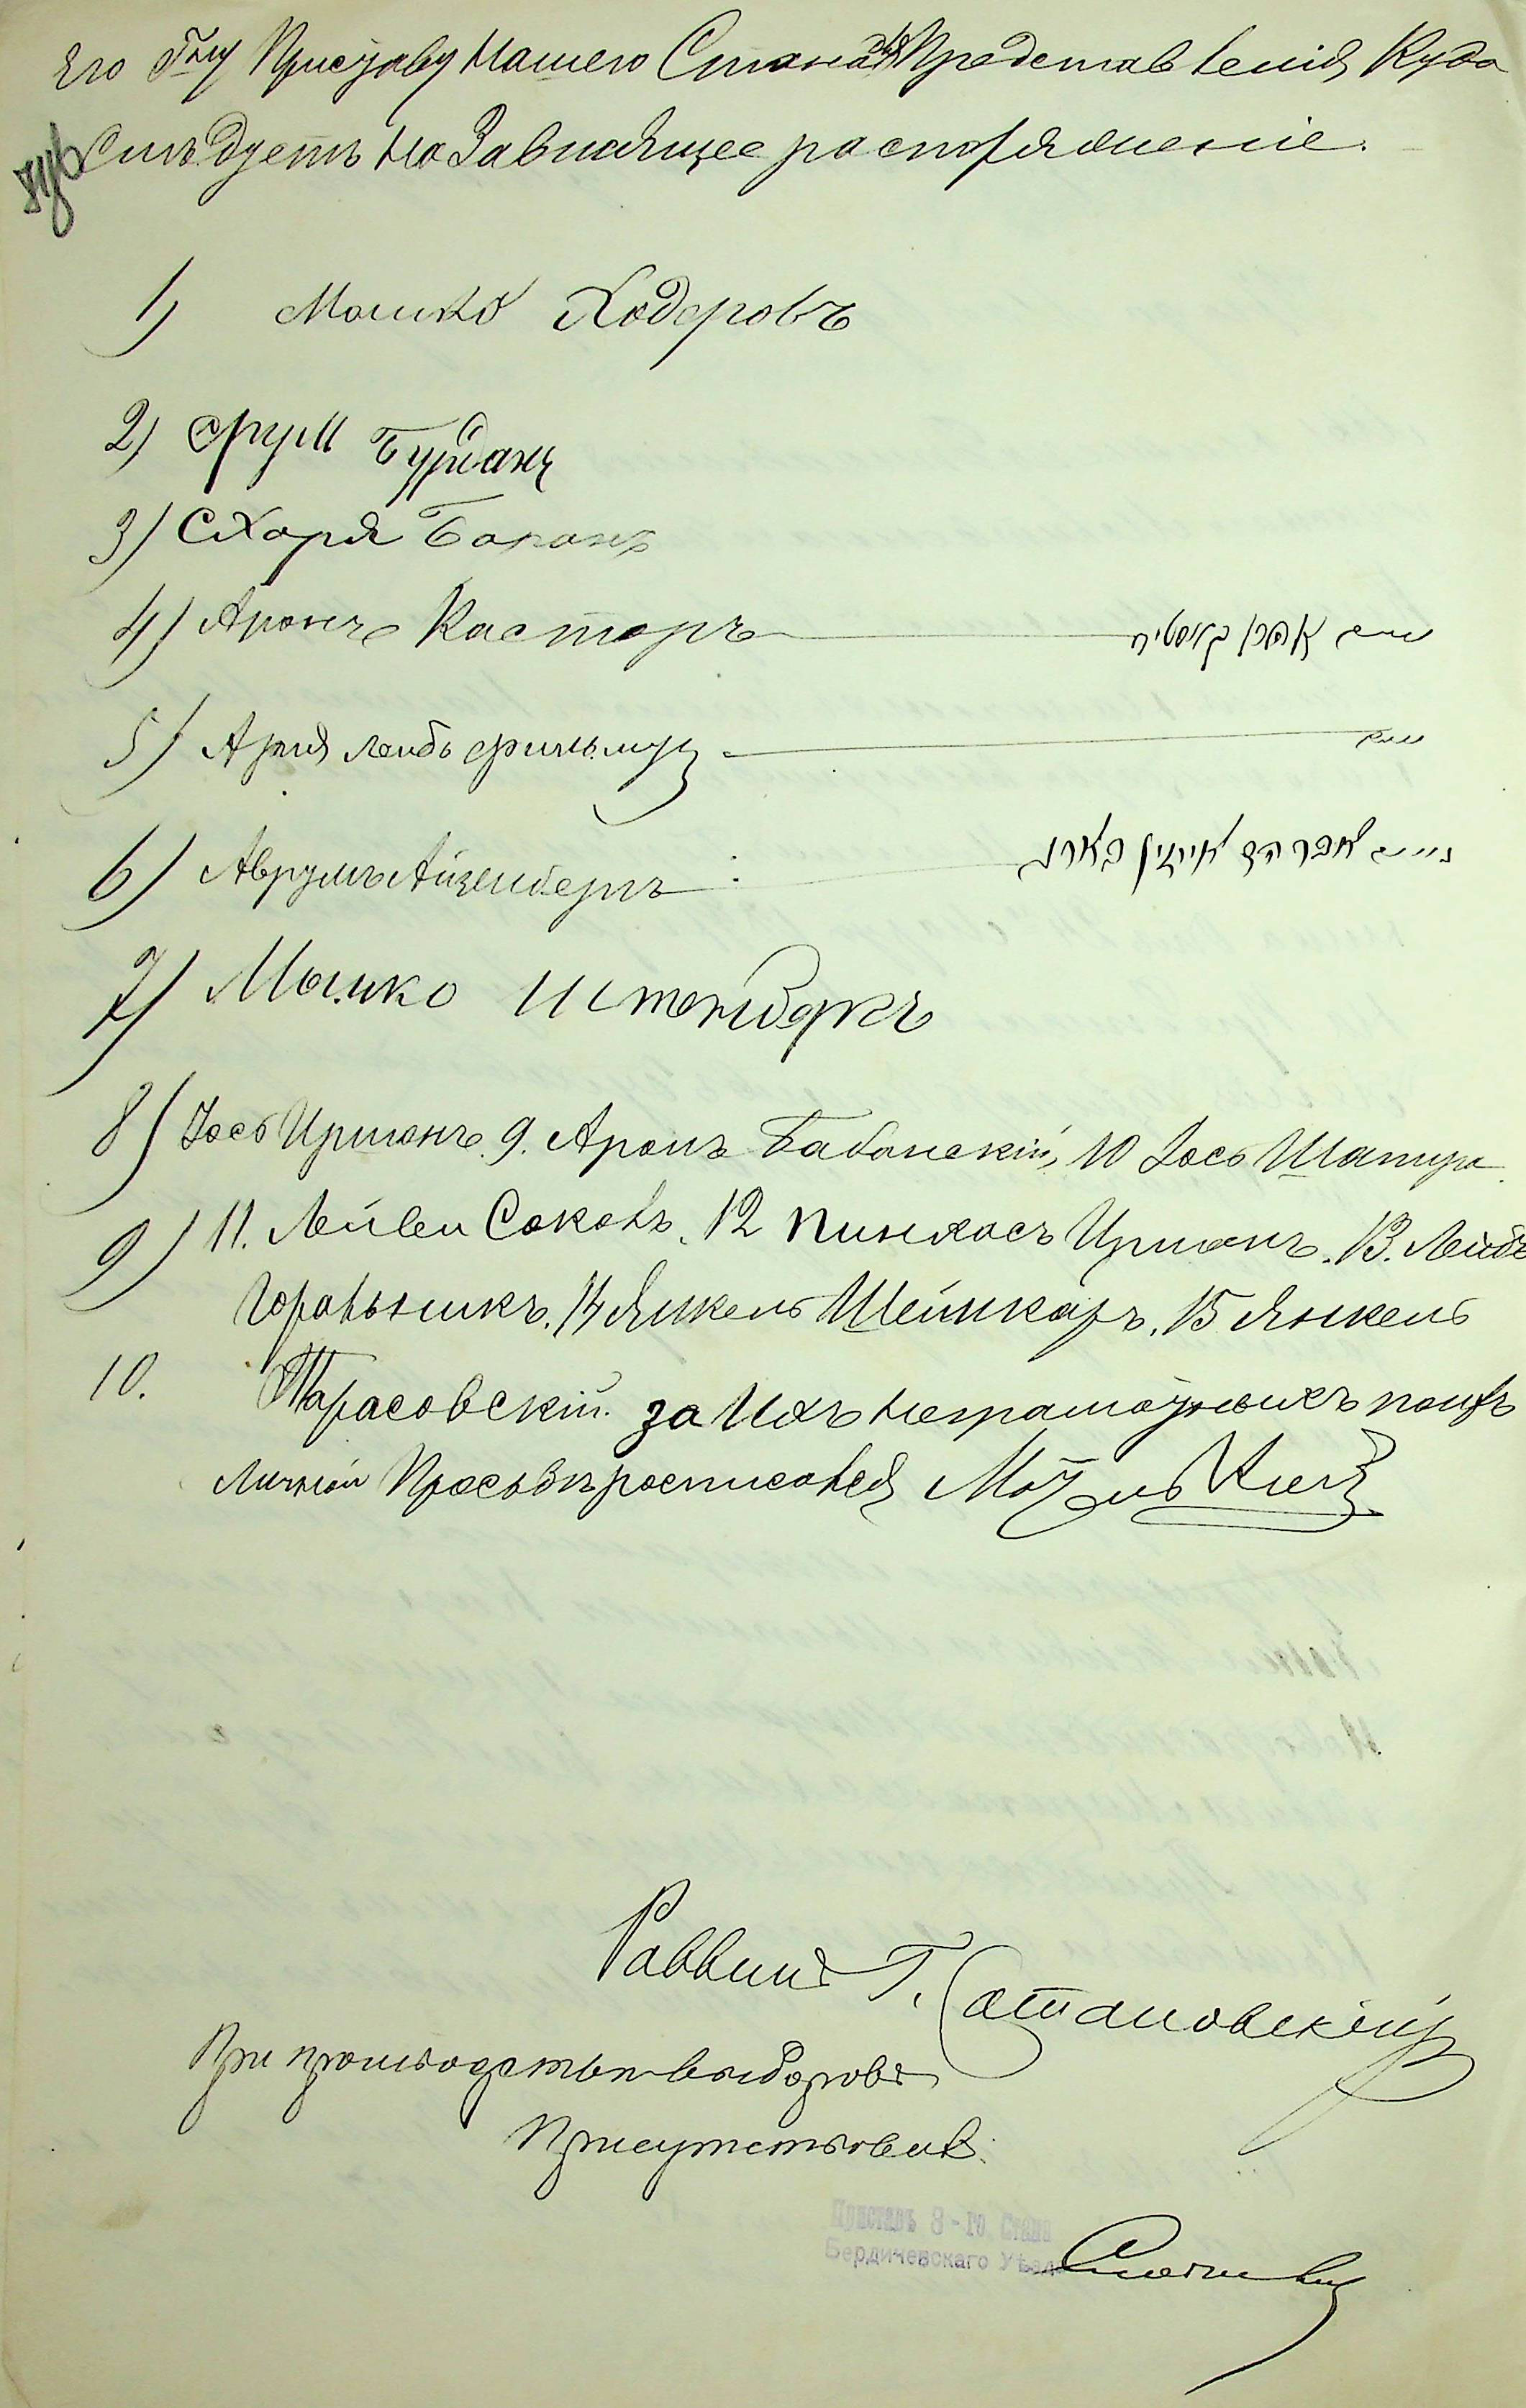 Его Г-ну Приставу Нашего Стана для Представленія Куда
Слѣдуетъ На Зависящее распоряженіе.
1) Мошко Ходоровъ
2) Сруль Бурданъ
3) Схаря Баранъ
4) Аронъ Касторъ
5) Ария Лейбъ
6) Аврумъ Айзенбергъ אברהם אייזין בארג
7) Мошко
8) Іось Цирманъ. 9. Аронъ Бабанскій, 10 Іось Шапира
9) 11. Лейви Соколъ. 12 Пинхасъ Цирманъ. 13. Лейбъ
Горальникъ. 14 Янкель Шейнкаръ. 15 Янкель
10. Тарасовскій. за Ихъ неграмотныхъ поихъ
личной Просьбѣ росписался Мотель
Раввинъ Г. Сатановскій
При производствѣ выборовъ
Присутствовалъ:
Приставъ 3-го Стана
Бердичевскаго Уѣзда